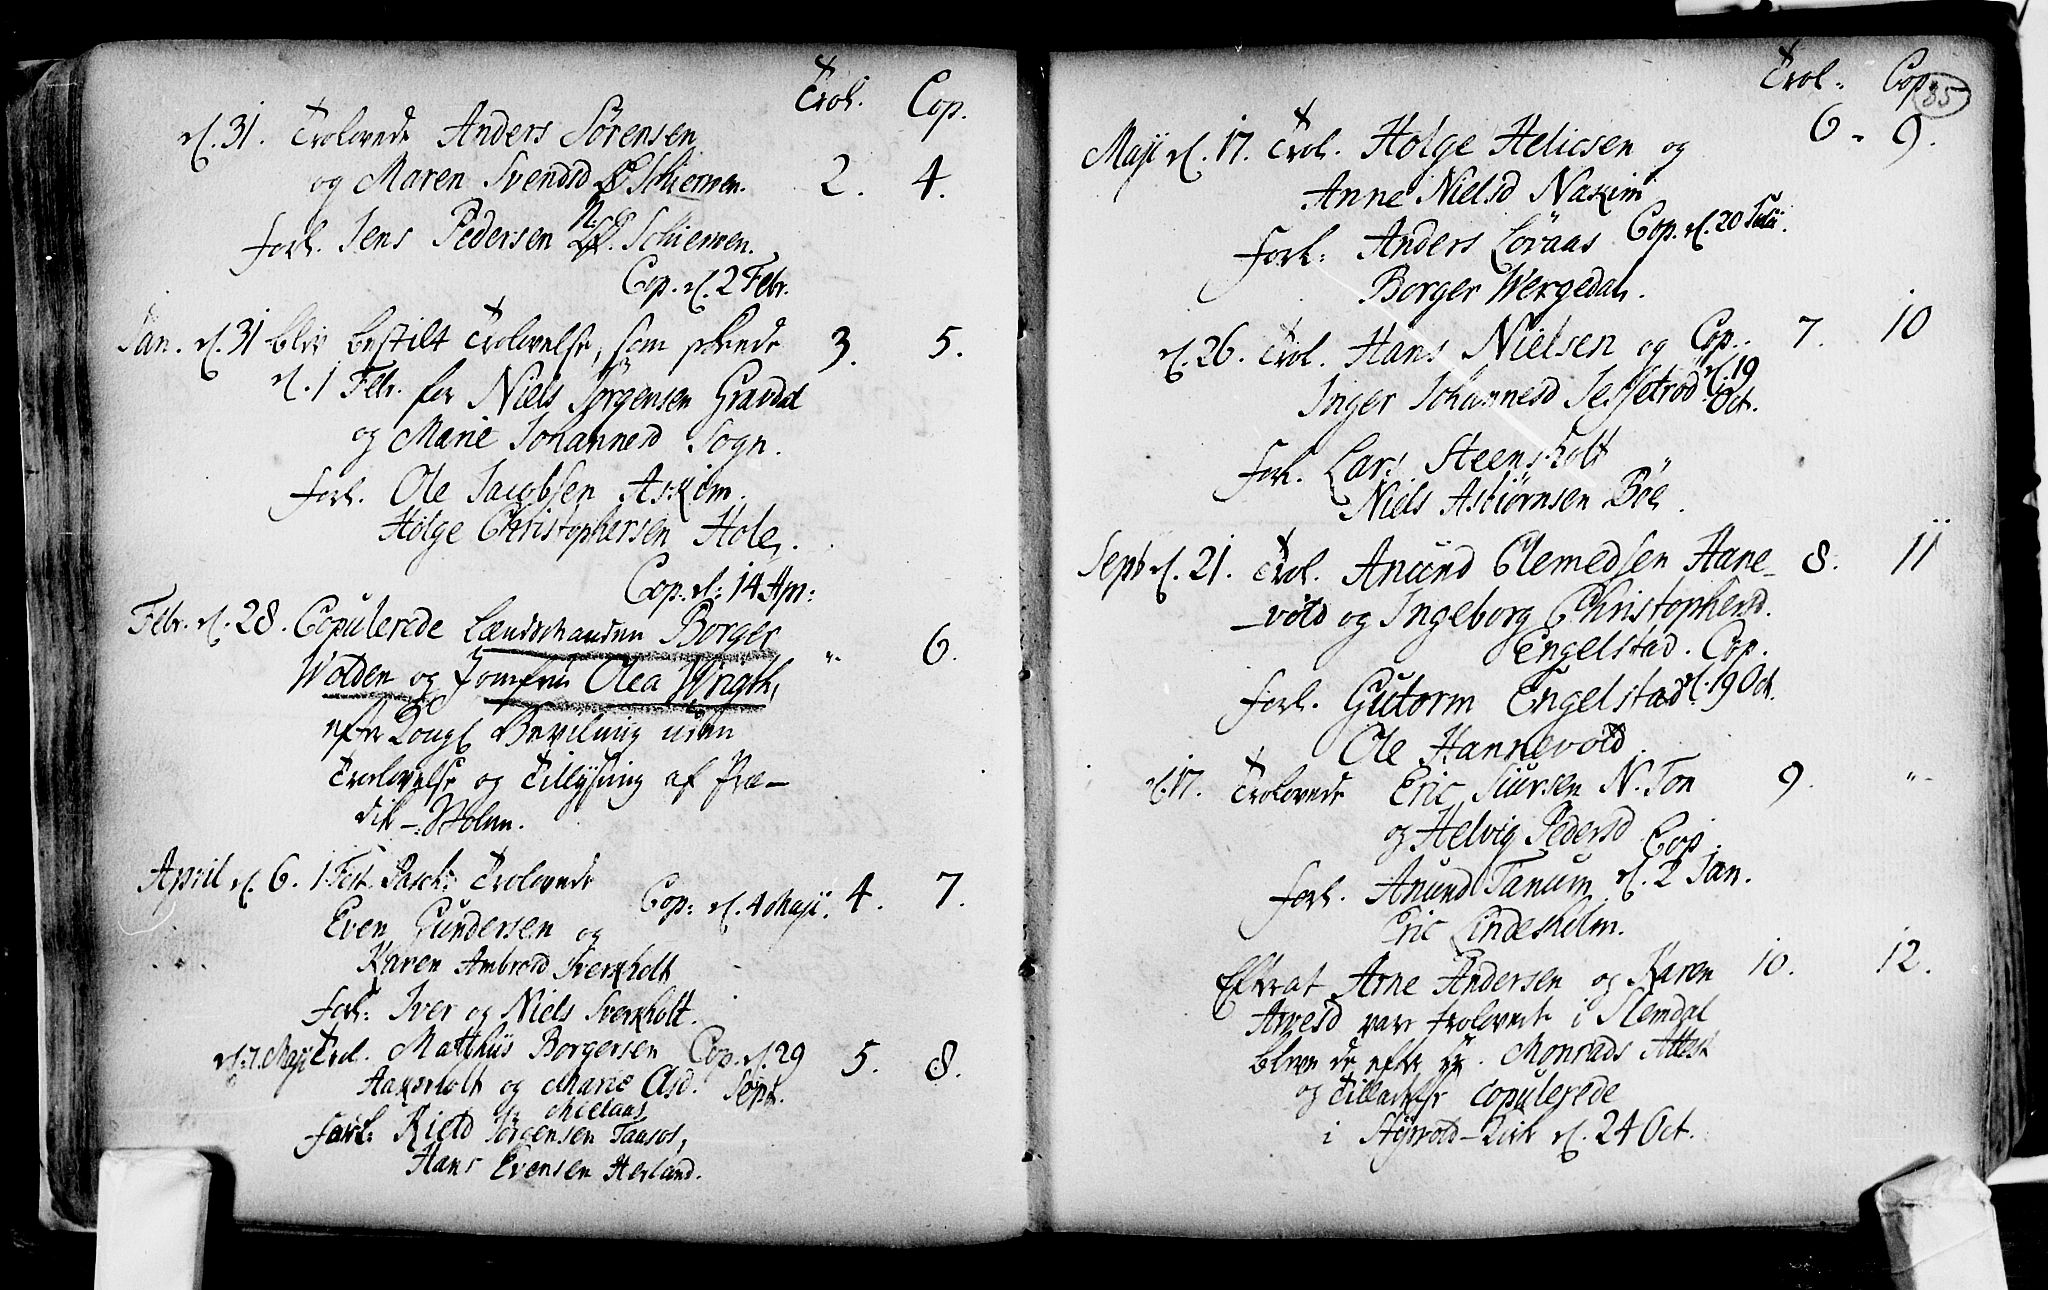 Trol. Cop.
d. 31. Trolovede Anders Sörensen
og Maren Svendsd Schierven. 2. 4.
forl. Jens Pedersen N. Schierven.
Cop. d. 2 Febr.
Jan. d. 31 blev bestilt Trolovelse, som skeede 3. 5.
d. 1 Febr. for Niels Jörgensen Gravdal
og Marie Johannesd Sogn.
forl. Ole Jacobsen Askim.
Holge Christophersen Hole.
Cop. d. 14 Apr:
Febr. d. 28. Copulerede Lændsmanden Borger
Wolden og Jomfru Olea Wrigth, „ 6.
efter Kongl Bevilning uden
Trolovelse og Tillysning af Præ-
dik-Stolen.
April d. 6. 1. Fest. Pasch: Trolovede
Even Gundersen og Cop: d. 4 Maji. 4. 7.
Karen Ambrosd Sverkholt
forl: Iver og Niels Sverkholt.
d. 7. Maji Trol. Matthiis Borgersen Cop. d. 29 5. 8.
Aakerholt og Marie Olsd. Sept.
Mielaas
forl: Kield Jörgensen Taasos,
Hans Evensen Herland.
Trol. Cop. 85
Maji d. 17. Trol. Holge Helicsen og 6 „ 9.
Anne Nielsd Naskim
forl: Anders Lövaas Cop. d. 20 Julii.
Borger Wergedal.
d. 26. Trol. Hans Nielsen og Cop. 7. 10
Inger Johannesd Jessetrod d. 19
Oct.
forl. Lars Steensholt
Niels Asbiörnsen Böe.
Sept d. 21. Trol. Anund Clemedsen Hane- 8. 11
-vold og Ingeborg Christophersd.
Engelstad. Cop.
forl. Gutorm Engelstad d. 19 Oct.
Ole Hannevold
d. 17. Trolovede Eric Siursen N. Ton 9. „
og Helvig Pedersd Cop.
forl. Anund Tanum d. 2 Jan.
Eric Lindesholm.
Efterat Arne Andersen og Karen 10. 12.
Arvesd vare trolovede i Slemdal
bleve de efter Hr. Monrads Attest
og Tilladelse copulerede
i Styrvold-Kirke d. 24 Oct.